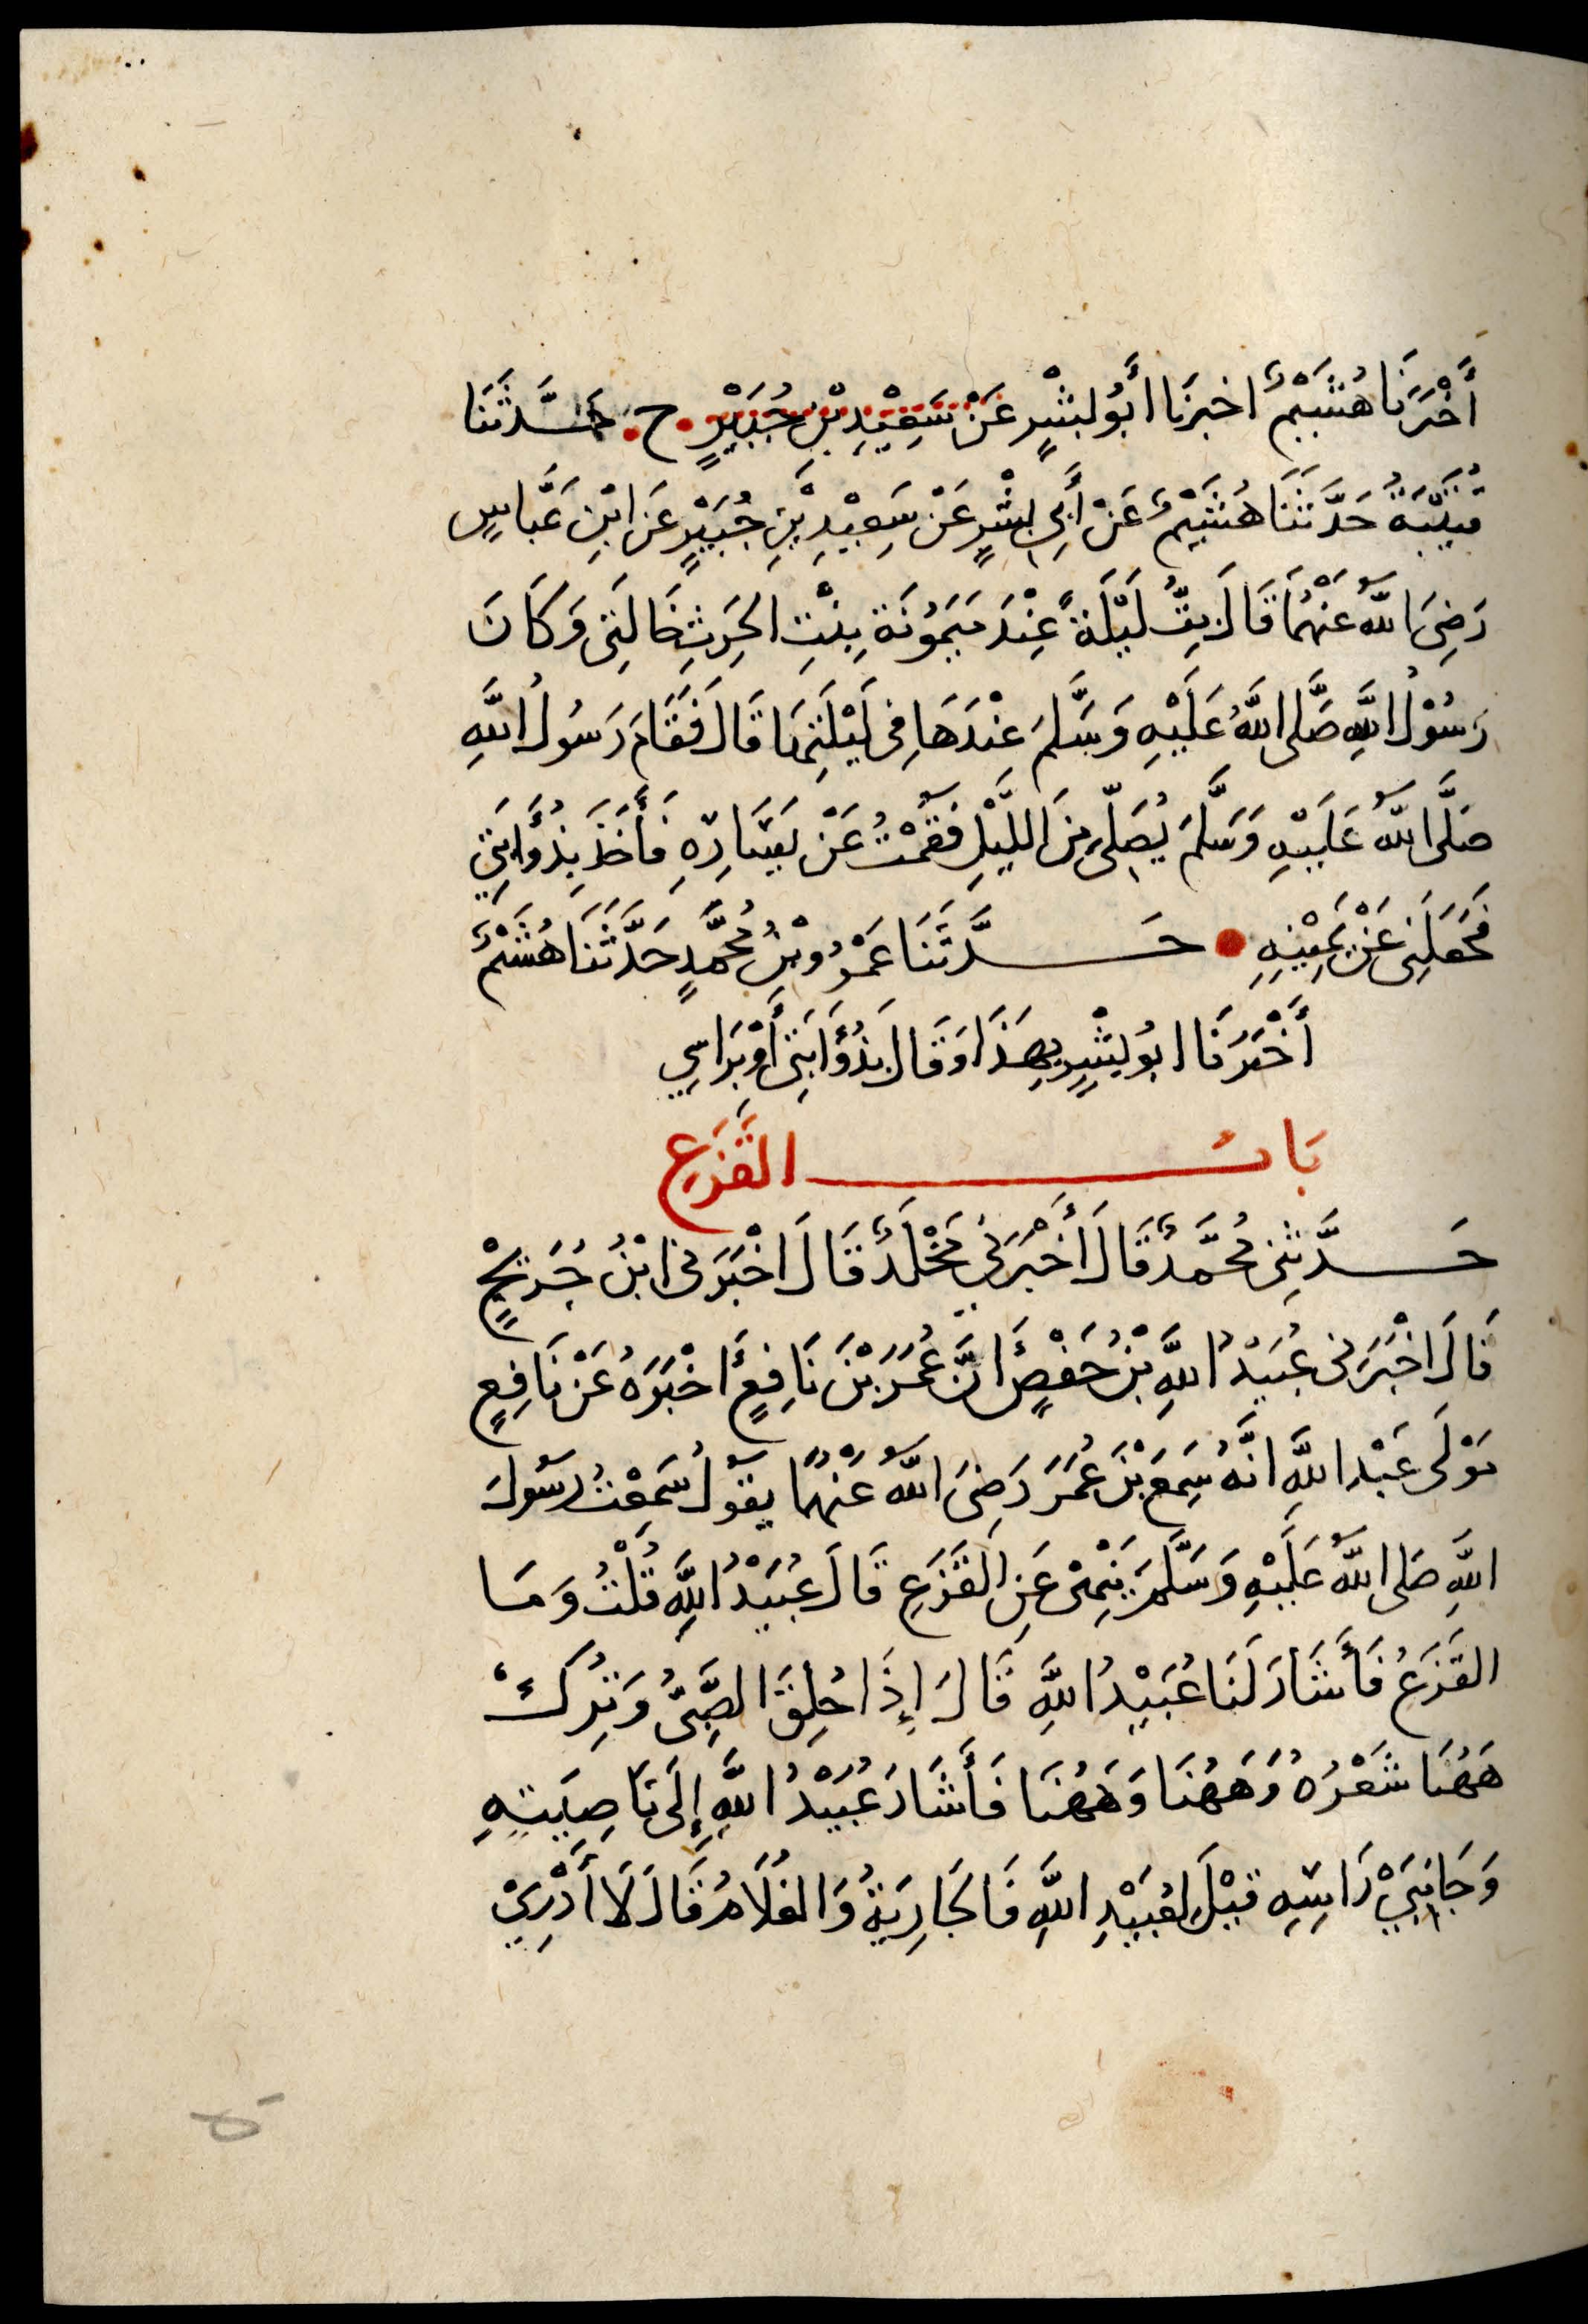 أَخْبَرَنَا هُشَيْمٌ اخبرَنا أَبُو بِشْرٍ عَنْ سَعِيْدِ بْنِ جُبَيْرٍ ح حَدَّثَنَا
قُتَيْبَةُ حَدَّثَنَا هُشَيْمٌ عَنْ أَبِي بِشْرٍ عَنْ سَعِيْدِ بْنِ جُبَيْرٍ عَنِ ابْنِ عَبَّاسٍ
رَضِيَ اللّٰهُ عَنْهُمَا قَالَ بِتُّ لَيْلَةً عِنْدَ مَيْمُوْنَةَ بِنْتِ الحٰرِثِ خَالَتِى وَكَانَ
رَسُوْلُ اللَّهِ صَلَّى اللَّهُ عَلَيْهِ وَسَلَّمَ عِنْدَهَا فِى لَيْلَتِهَا قَالَ فَقَامَ رَسُولُ اللَّهِ
صَلَّى اللّٰهُ عَلَيْهِ وَسَلَّمَ يُصَلِّى مِنَ اللَّيْلِ فَقُمْتُ عَنْ يَسَارِهِ فَأَخَذَ بِذُؤَابَتِي
فَجَعَلَنِى عَنْ يَمِيْنِهِ حَدَّثَنَا عَمْرُو بْنُ مُحَمَّدٍ حَدَّثَنَا هُشَيْمٌ
أَخْبَرَنَا ابُو بِشْرٍ بِهَذَا وَقَالَ بِذُؤَابَتِى أَوْ بِرَاسِي
بَابُ القَزَعِ
حَدَّثَنِى مُحَمَّدٌ قَالَ أَخْبَرَنِي مَخْلَدٌ قَالَ اخْبَرَنِى ابْنُ جُرَيْجٍ
قَالَ اخْبَرَنِى عُبَيْدُ اللَّهِ بْنُ حَفْصٍ أَنَّ عُمَرَ بْنَ نَافِعٍ أَخْبَرَهُ عَنْ نَافِعٍ
مَوْلَى عَبْدِ اللَّهِ انَّهُ سَمِعَ بْنَ عُمَرَ رَضِىَ اللّٰهُ عَنْهُمَا يقولُ سَمِعْتُ رسُولَ
اللَّهِ صَلى اللّٰهُ عَلَيْهِ وَسَلَّمَ يَنْهٰى عَنِ القَزَعِ قَالَ عُبَيْدُ اللَّهِ قُلْتُ وَمَا
القَزَعُ فَأَشَارَ لَنَا عُبَيْدُ اللَّهِ قَالَ إِذَا حُلِقَ الصَّبِىُّ وَتُرِكَ
هَهُنَا شَعْرُهُ وَهَهُنَا وَهَهُنَا فَأَشَارَ عُبَيْدُ اللَّهِ إِلَى نَاصِيَتِهِ
وَجَانِبَيْ رَاسِهِ قِيْلَ لِعُبَيْدِ اللَّهِ فَالجَارِيَةُ وَالغُلَامُ قَالَ لَا أَدْرِيْ